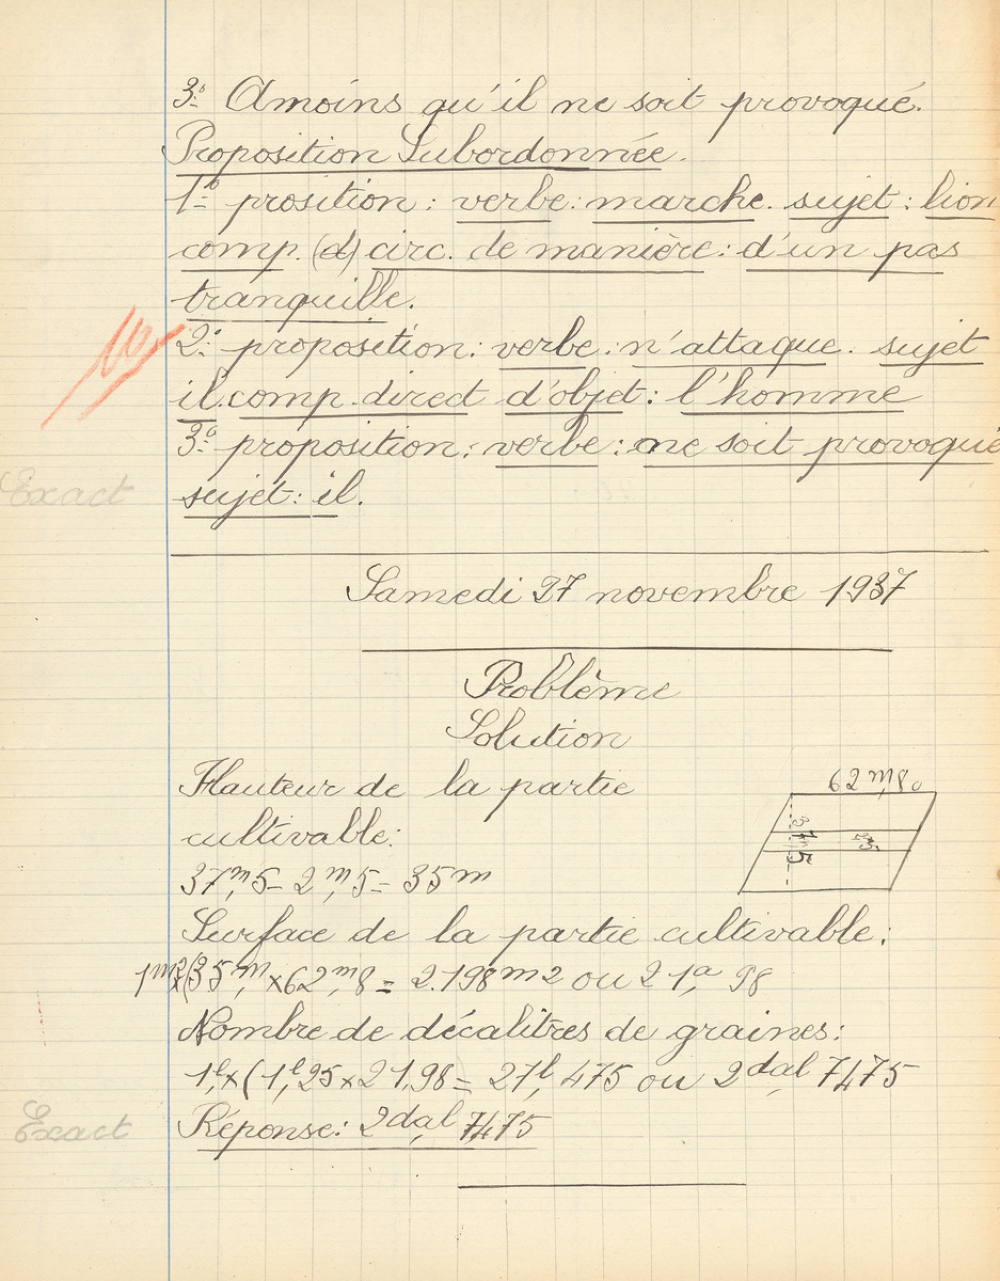 3º Amoins qu'il ne soit provoqué.
Proposition Subordonnée.
1º prosition: verbe: marche. sujet: lion
comp. (d) circ. de manière: d'un pas
tranquille.
10
2º proposition: verbe: n'attaque. sujet
il. comp. direct d'objet: l'homme
3º proposition: verbe: ne soit provoqué
Exact
sujet: il.
Samedi 27 novembre 1937
Problème
Solution
Hauteur de la partie
62m,80
cultivable:
37,5
2,5
37m,5 - 2m,5 = 35m
Surface de la partie cultivable:
1m2 x (35m, x 62m,8 = 2.198m2 ou 21a, 98
Nombre de décalitres de graines:
1l, x (1l,25 x 21,98 = 27l,475 ou 2dal,7475
Exact
Réponse: 2dal,7475